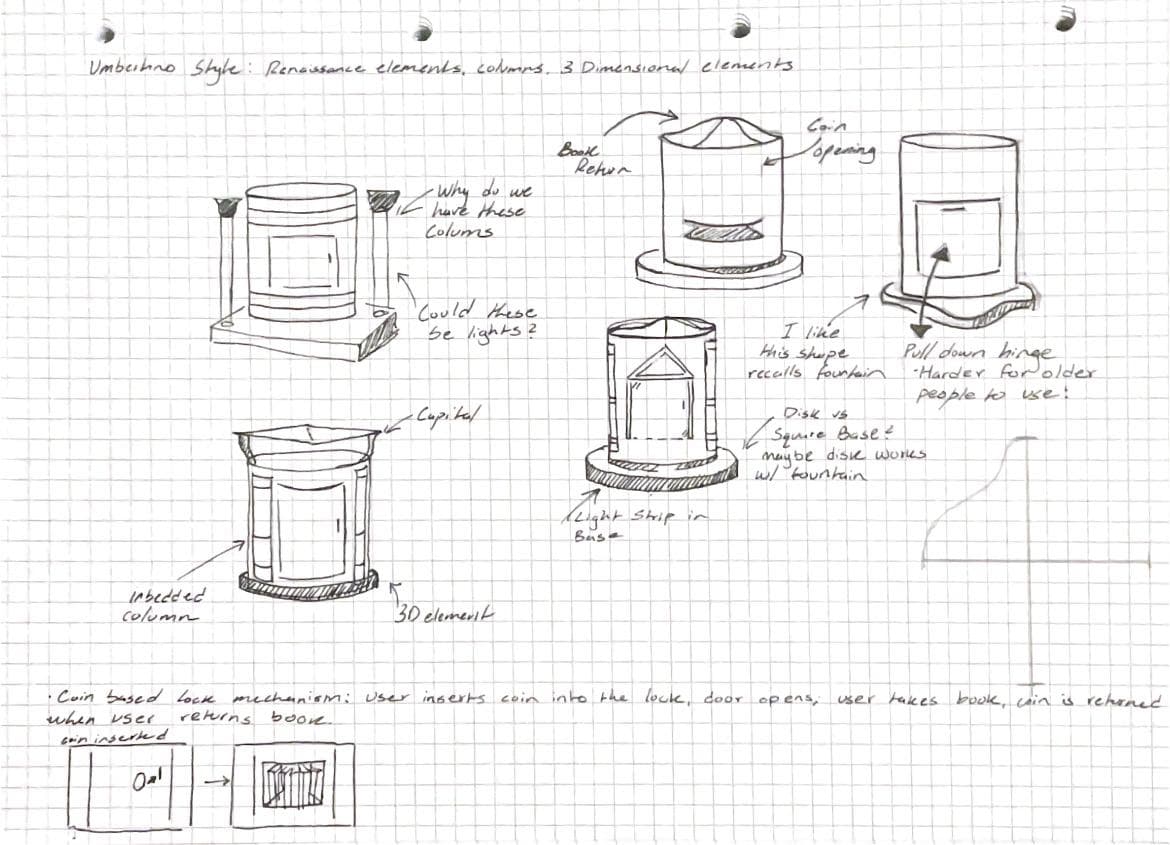 Umbertino Style: Renaissance elements, columns, 3 Dimensional elements
Book
Return
Coin
opening
Why do we
have these
Colums
Could these
be lights?
I like
this shape
recalls fountain
Pull down hinge
·Harder for older
people to use!
Capital
Disk vs
Square Base?
maybe disk works
w/ fountain
Light Strip in
Base
Inbedded
column
3D element
· Coin based lock mechanism: user inserts coin into the lock, door opens, user takes book, coin is returned
when user returns book.
coin inserted